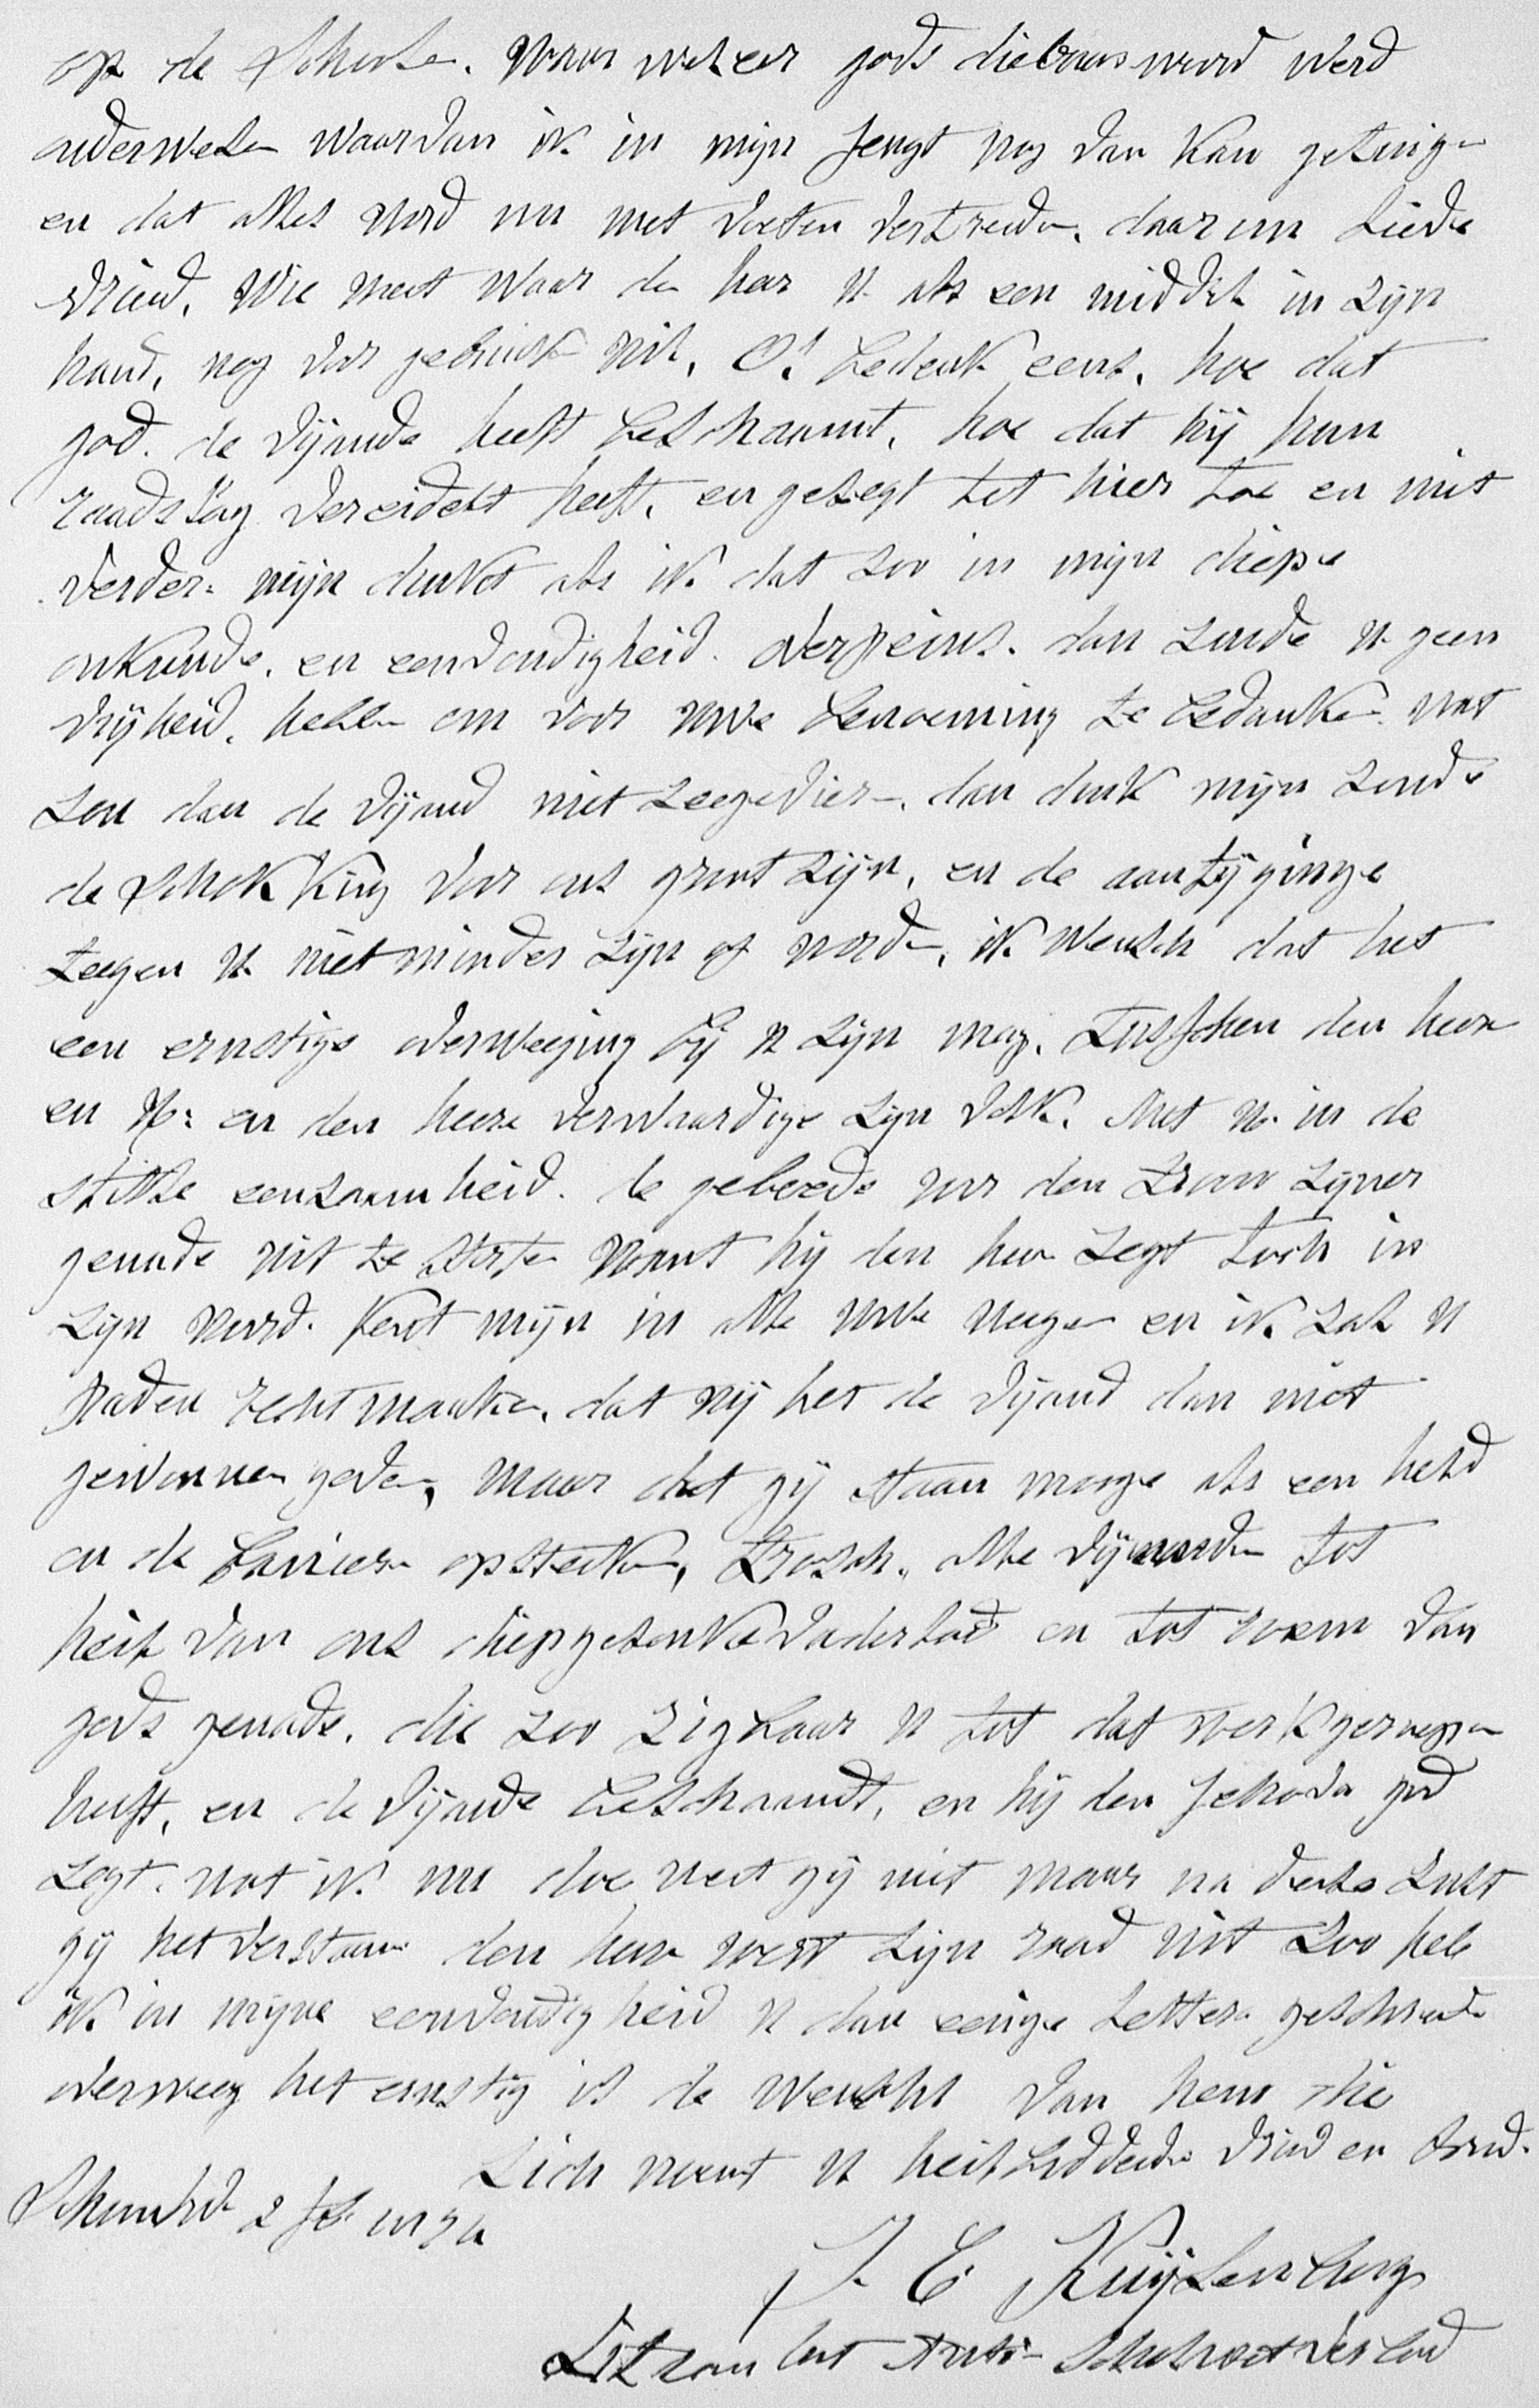 op de schoole. waar wel eer gods dierbaar woord werd
onderwesen waar van ik in mijn Jeugt nog van kan getuige
en dat alles word nu met voeten vertreede. daar om Liede
vriend. Wie weet waar de heer U als een middel in zijn
hand, nog voor gebruike wil, O! bedenk eens, hoe dat
god. de vijande heeft beschaamt, hoe dat hij hun
raadslag vereidelt heeft, en gesegt tot hier toe en niet
verder. mijn dunkt als ik dat zoo in mijn diepe
onkunde. en eenvoudigheid. overpeins. dan zoude U geen
vrijheid. hebbe om voor uwe benoeming te bedanken. wat
zou dan de vijand niet zeegevieren. dan dunk mijn zoude
de schokking voor ons groot zijn, en de aantijginge
teegen U niet minder zijn of worde, ik wensch dat het
een ernstige overweeging bij U zijn mag. tusschen den heere
en U: en den heere verwaardige zijn volk. Met U. in de
stille eenzaamheid. de gebeede voor den troon zijner
genade uit te storte want hij den heer zegt toch in
zijn woord. Kent mijn in alle uwe weege en ik zal U
paden recht maake. dat wij het de vijand dan niet
gewonnen geven, maar dat gij staan mooge als een held
en de banier opsteeke, trosch. alle vijande tot
heil van ons diepgesonke vaderland en tot roem van
gods genade. die zoo zigbaar U tot dat werk geroepen
heeft, en de vijande beschaamdt, en hij den Jehova god
zegt. wat ik nu doe weet gij niet maar na deese zult
gij het verstaan den heer voert zijn raad uit zoo heb
ik in mijne eenvoudigheid U dan eenige letters geschreeve
overweeg het ernstig is de wensch van hem die
zich noemt U heilbiddende vriend en broed.
2 feb
J E Kuijlenburg
Lit van het Anti-Schoolwet verbond